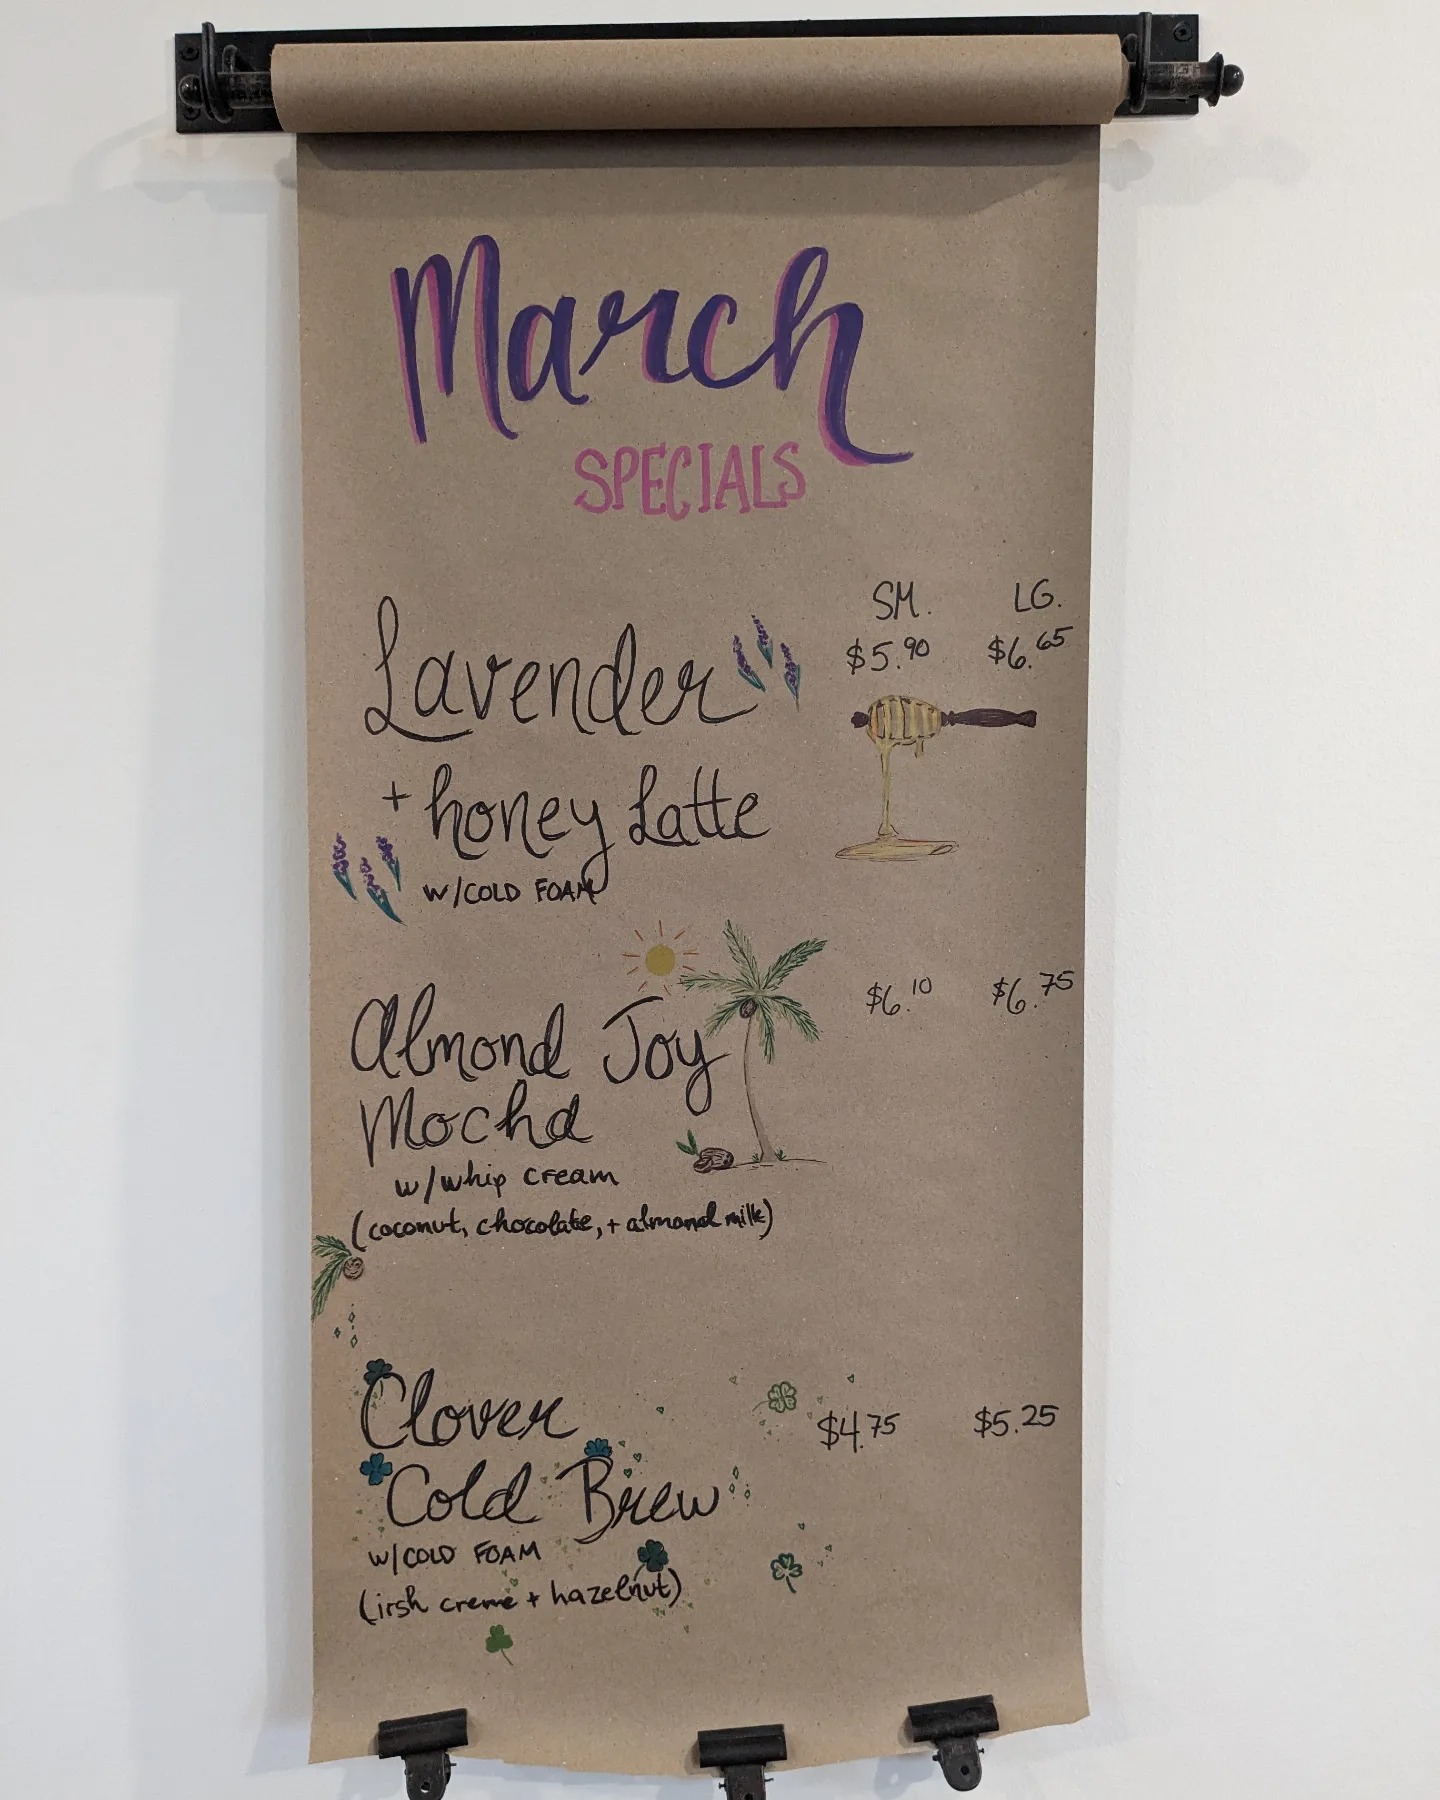 March
SPECIALS
SM. LG.
Lavender $5.90 $6.65
+ honey Latte
w/COLD FOAM
Almond Joy $6.10 $6.75
Mocha
w/whip cream
(coconut, chocolate, + almond milk)
Clover $4.75 $5.25
Cold Brew
w/COLD FOAM
(irsh creme + hazelnut)